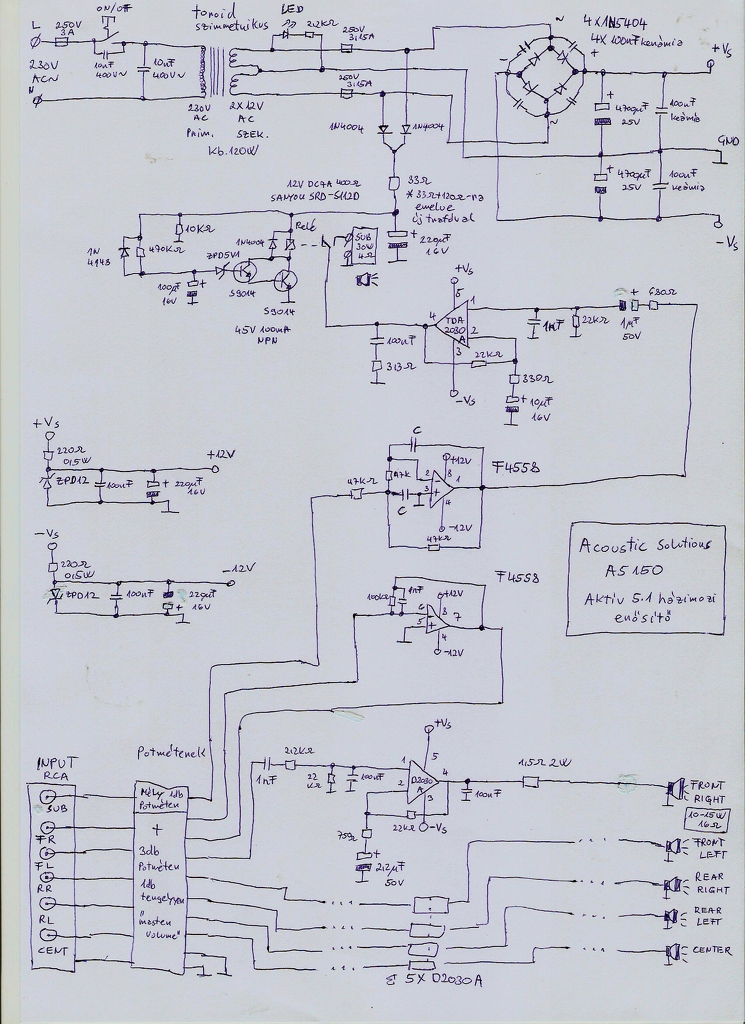 ON/OFF
L
250V
3A
230V
AC~
N
10nF
400V~
10nF
400V~
toroid
szimmetrikus
230V
AC
Prim.
2X12V
AC
SZEK.
Kb. 120W
LED
2,2KΩ
250V
3,15A
250V
3,15A
4X1N5404
4X100nF kerámia
~
~
-
+
+Vs
+
4700µF
25V
100nF
kerámia
GND
+
4700µF
25V
100nF
kerámia
-Vs
1N4004
1N4004
12V DC7A 400Ω
SANYOU SRD-S112D
33Ω
* 33Ω+120Ω-ra
emelve
új trafóval
+
220µF
16V
1N
4148
470KΩ
10KΩ
100µF
16V
+
ZPD5V1
S9014
1N4004
Relé
S9014
45V 100mA
NPN
SUB
30W
4Ω
+Vs
5
1
2
3
4
TDA
2030
A
-Vs
100nF
3,3Ω
22KΩ
330Ω
+
10µF
16V
1nF
22KΩ
+
1µF
50V
680Ω
+Vs
220Ω
0,5W
ZPD12
100nF
+
220µF
16V
+12V
-Vs
220Ω
0,5W
ZPD12
100nF
220µF
+
16V
-12V
C
47K
C
47KΩ
2
3
8
1
4
+12V
-12V
47KΩ
F4558
100KΩ
1nF
6
5
8
7
4
+12V
-12V
F4558
Acoustic Solutions
AS150
Aktív 5.1 házimozi
erősítő
INPUT
RCA
SUB
FR
FL
RR
RL
CENT
Potméterek
Mély 1db
Potméter
+
3db
Potméter
1db
tengelyen
"master
volume"
1nF
2,2KΩ
22
KΩ
100nF
1
2
3
4
5
D2030
A
+Vs
-Vs
22KΩ
75Ω
+
2,2µF
50V
100nF
1,5Ω 2W
FRONT
RIGHT
10-15W
16Ω
FRONT
LEFT
REAR
RIGHT
REAR
LEFT
CENTER
5XD2030A